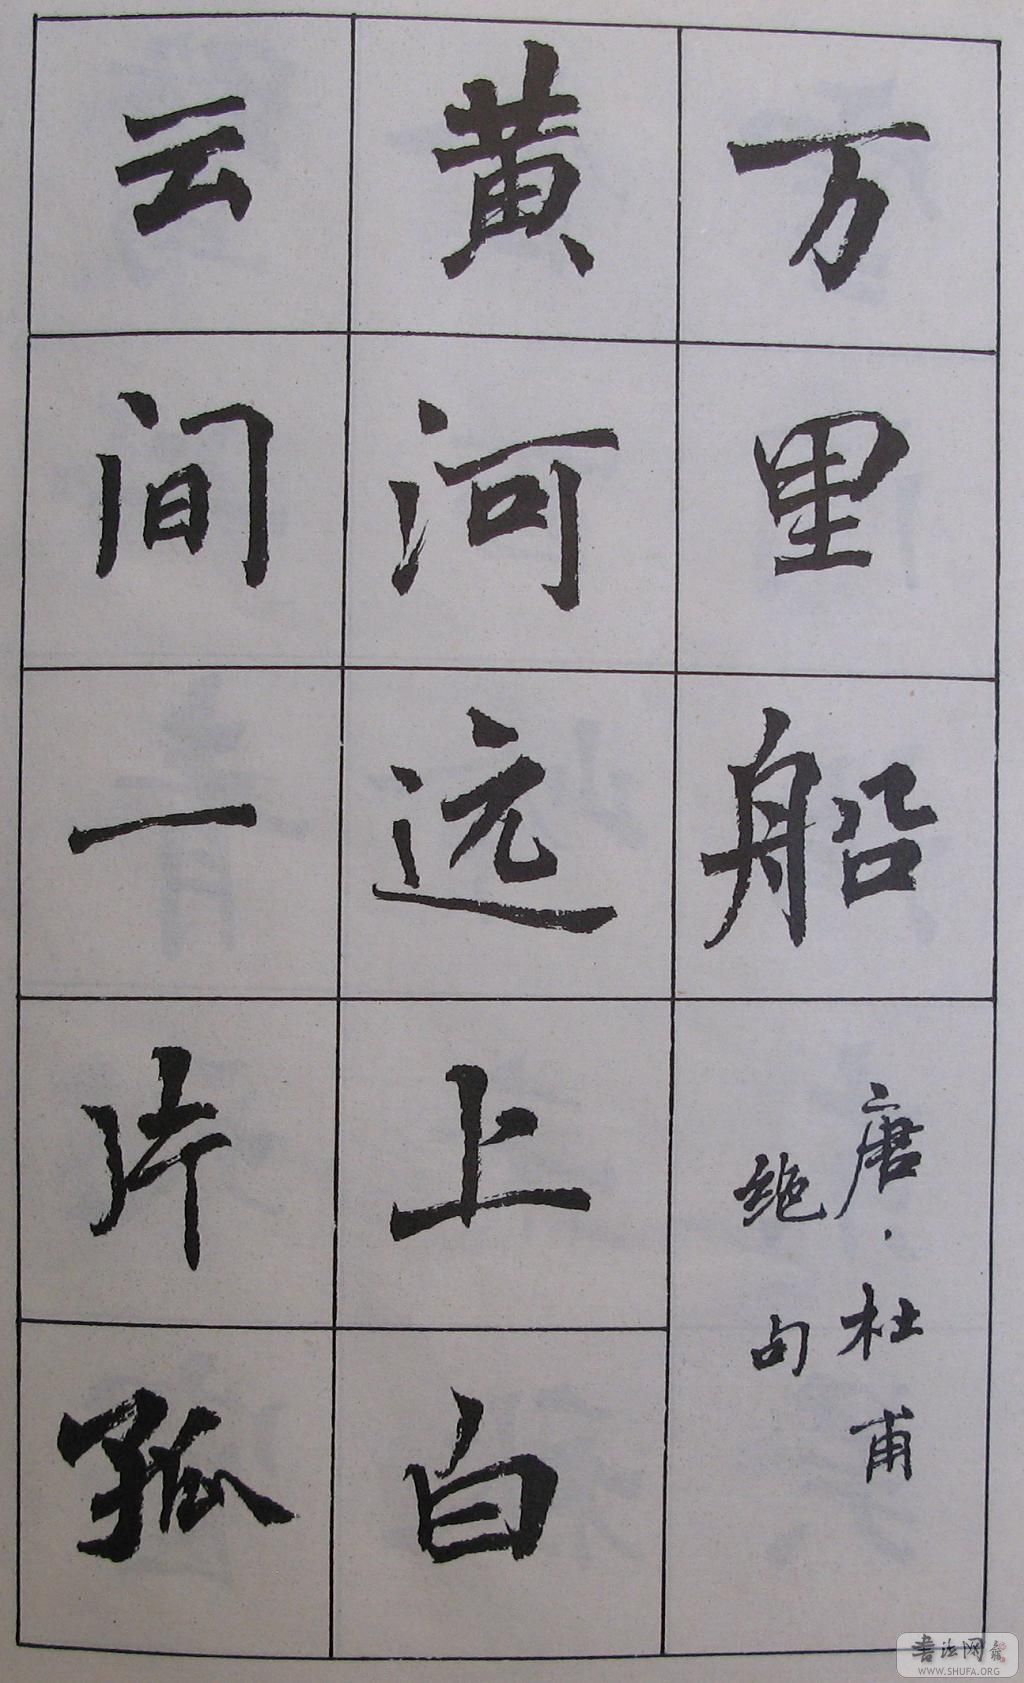 万里船
唐·杜甫
绝句
黄河远上白
云间一片孤
书法网
WWW.SHUFA.ORG